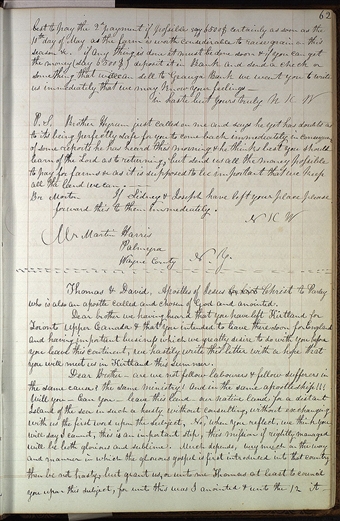 62
best to pay the 2nd payment if possible say 6500$ certainly as soon as the
10th day of May as the farm is worth considerable to raise grain on this
season &c. if any thing is done it must be done soon & if you can get
the money (say 6500$) deposit it in Bank and send a check or
something that we can sell to Geauga Bank we want you to write
us immediately that we may know your feelings —
In haste but yours truly N K W
P.S. Brother Hyrum just called on me and says he yet has doubts as
to its being perfectly safe for you to come back immediately in consequence
of some reports he has heard this morning & he thinks best you should
learn of the Lord as to returning, but send us all the money possible
to pay for farms &c as it is supposed to be important that we keep
all the land we can. —
Bro Martin If Sidney & Joseph have left your place please
forward this to them immediately.
N K W
Mr Martin Harris
Palmyra
Wayne County N. Y.
Thomas & David, Apostles of Jesus Christ to Parley
who is also an apostle called and chosen of God and anointed.
Dear brother we having heard that you have left Kirtland for
Toronto Upper Canada & that you intended to leave there soon for England
and having important business which we greatly desire to do with you before
you leave this continent, we hastily write this letter with a hope that
you will meet us in Kirtland this summer.
Dear Brother — are we not fellow laborers & fellow sufferers in
the same cause? the same ministry? And in the same apostleship!!!
Will you — Can you — leave this land our native land for a distant
Island of the sea in such a hurry without consulting, without exchanging
with us the first word upon the subject, No, when you reflect, we think you
will say I cannot, this is an important step, this mission if rightly managed
will be both glorious and sublime. Much depends, very much in the way
and manner in which the glorious gospel is first introduced into that country
then be not hasty, but grant us, or unto me Thomas at least to council
you upon this subject, for unto this was I anointed & unto the 12 it